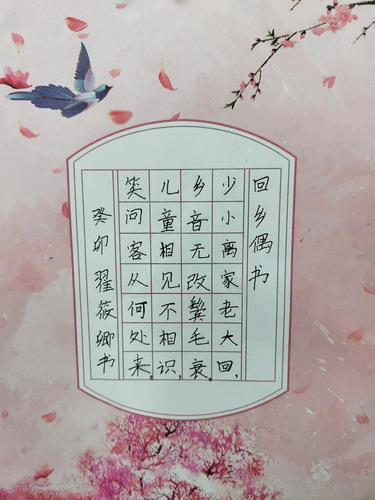 回乡偶书
少小离家老大回，
乡音无改鬓毛衰。
儿童相见不相识，
笑问客从何处来。
癸卯 翟筱卿书